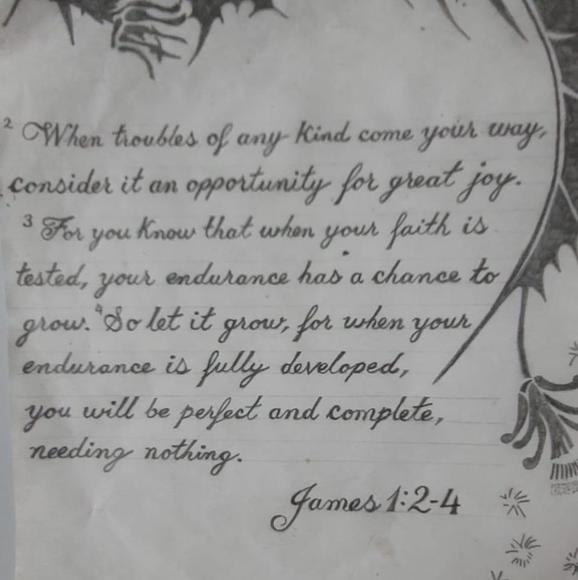 ² When troubles of any kind come your way,
consider it an opportunity for great joy.
³ For you know that when your faith is
tested, your endurance has a chance to
grow. ⁴So let it grow, for when your
endurance is fully developed,
you will be perfect and complete,
needing nothing.
James 1:2-4